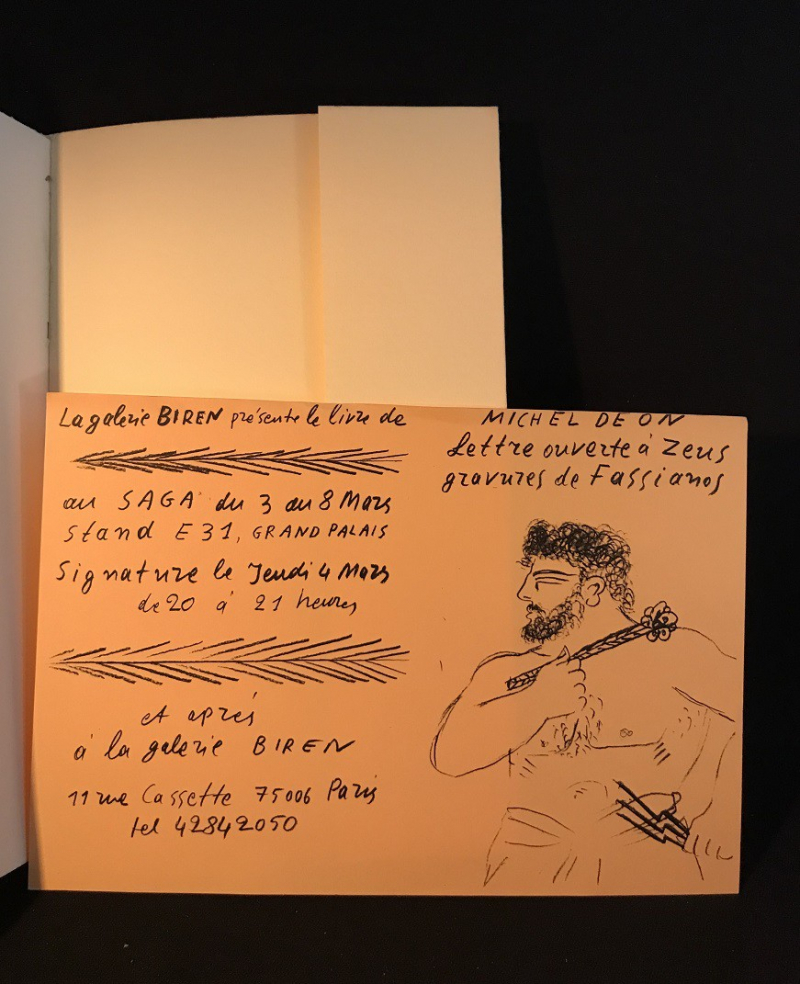 La galerie BIREN présente le livre de
au SAGA du 3 au 8 Mars
Stand E 31, GRAND PALAIS
Signature le Jeudi 4 Mars
de 20 á 21 heures
et aprés
á la galerie BIREN
11 rue Cassette 75006 Paris
tel 42842050
MICHEL DEON
Lettre ouverte á Zeus
gravures de Fassianos